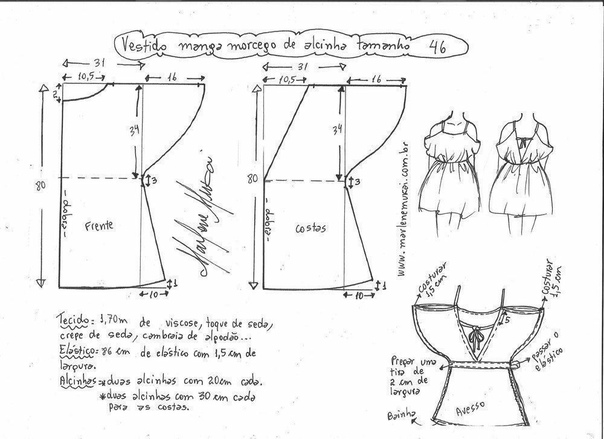 Vestido manga morcego de alcinha tamanho 46
31
10,5
16
2
34
80
3
-dobra-
Frente
1
10
31
10,5
16
34
80
3
-dobra-
costas
1
10
Marlene Mukai
www.marlenemukai.com.br
Tecido: 1,70m de viscose, toque de seda,
crepe de seda, cambraia de algodão...
Elástico: 86 cm de elástico com 1,5 cm de
largura.
Alcinhas: *duas alcinhas com 20cm cada.
*duas alcinhas com 30 cm cada
para as costas.
costurar
1,5 cm
costurar
1,5 cm
15
Pregar uma
tira de
2 cm de
largura
passar o
elástico
Bainha
Avesso